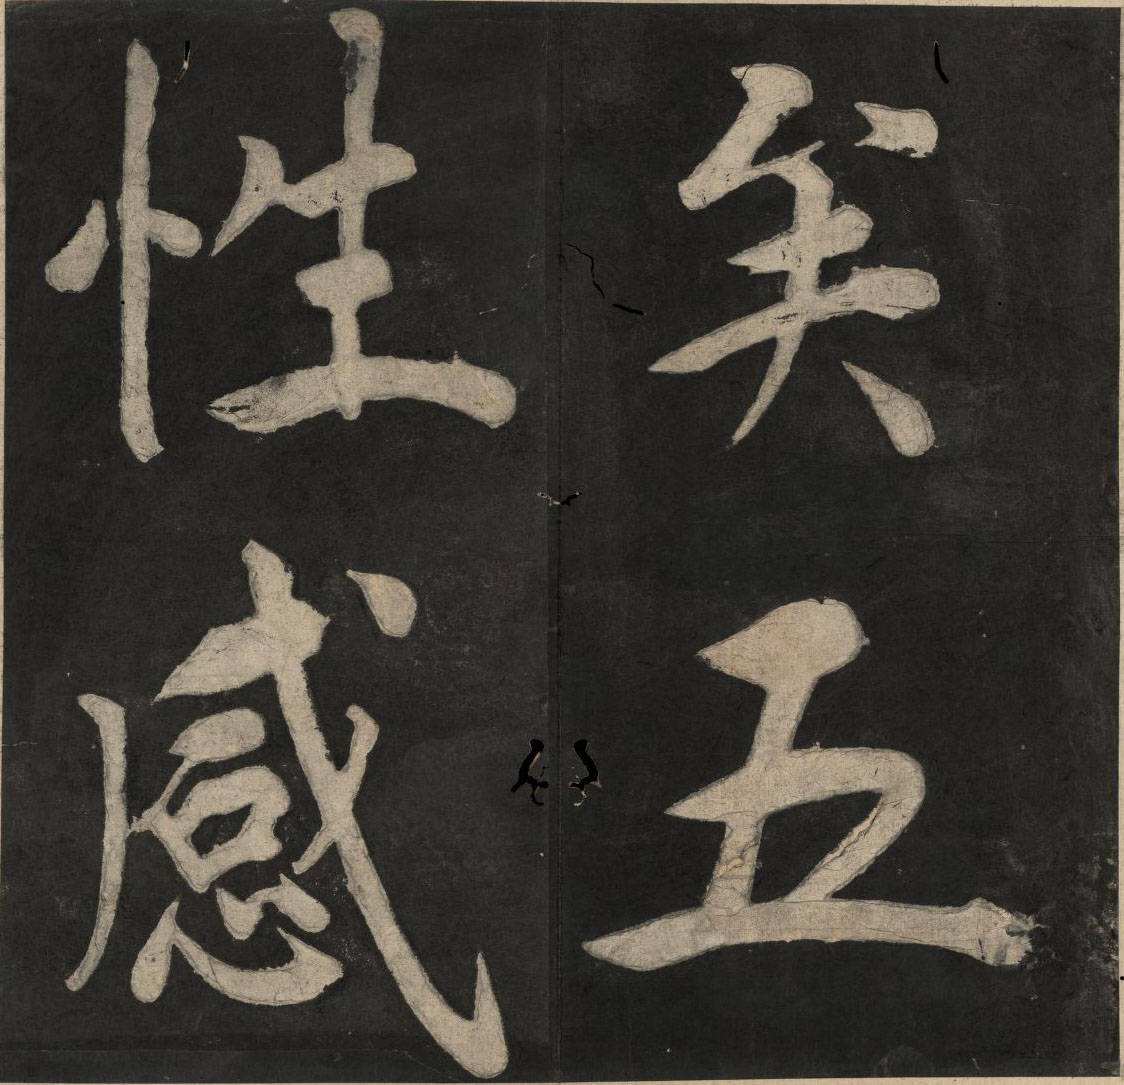 矣五
性感